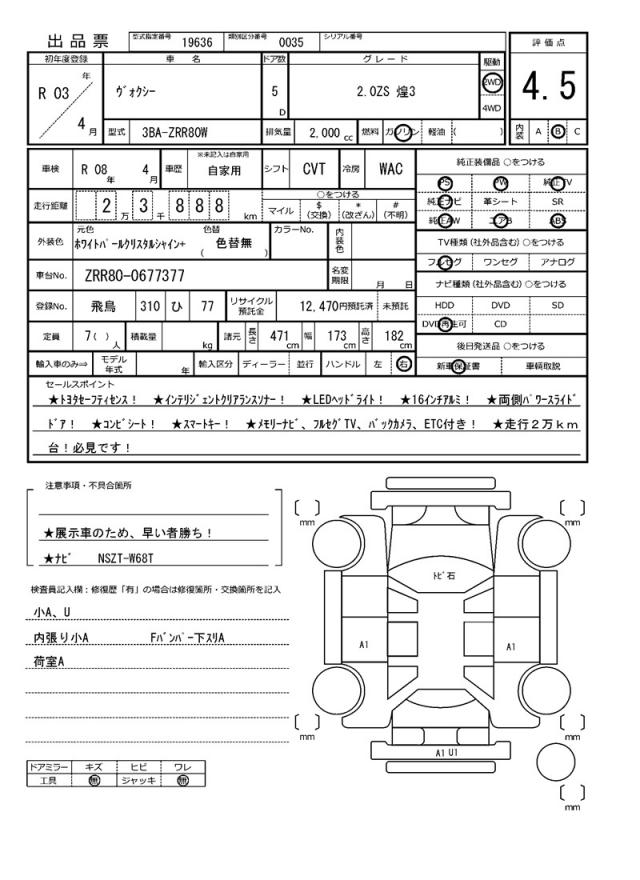 出品票 型式指定番号 19636 類別区分番号 0035 シリアル番号
初年度登録 車名 ドア数 グレード 駆動 評価点
R 03 年 4 月 ヴォクシー 5 D 2.0ZS 煌3 2WD 4WD 4.5
型式 3BA-ZRR80W 排気量 2,000 cc 燃料 ガソリン 軽油 ( ) 内装 A B C
車検 R 08 年 4 月 車歴 ※未記入は自家用 自家用 シフト CVT 冷房 WAC
走行距離 2 万 3 千 8 8 8 km ○をつける
マイル $ (交換) * (改ざん) # (不明)
外装色 元色 ホワイトパールクリスタルシャイン+ 色替 ( 色替無 ) カラーNo. 内装色
車台No. ZRR80-0677377 名変期限 月 日
登録No. 飛鳥 310 ひ 77 リサイクル預託金 12,470円預託済 未預託
定員 7( ) 人 積載量 kg 諸元 長さ 471 cm 幅 173 cm 高さ 182 cm
輸入車のみ⇒ モデル年式 年 輸入区分 ディーラー 並行 ハンドル 左 右
純正装備品 ○をつける
PS PW 純正TV
純正ナビ 革シート SR
純正AW エアB ABS
TV種類 (社外品含む) ○をつける
フルセグ ワンセグ アナログ
ナビ種類 (社外品含む) ○をつける
HDD DVD SD
DVD再生可 CD
後日発送品 ○をつける
新車保証書 車輌取説
セールスポイント
★トヨタセーフティセンス! ★インテリジェントクリアランスソナー! ★LEDヘッドライト! ★16インチアルミ! ★両側パワースライド
ドア! ★コンビシート! ★スマートキー! ★メモリーナビ、フルセグTV、バックカメラ、ETC付き! ★走行2万km
台!必見です!
注意事項・不具合箇所
★展示車のため、早い者勝ち!
★ナビ NSZT-W68T
検査員記入欄:修復歴「有」の場合は修復箇所・交換箇所を記入
小A、U
内張り小A Fバンパー下スリA
荷室A
ドアミラー キズ ヒビ ワレ
工具 無 ジャッキ 無
[ ] mm [ ] mm
トビ石
A1 A1
[ ] mm [ ] mm
A1 U1
[ ] mm